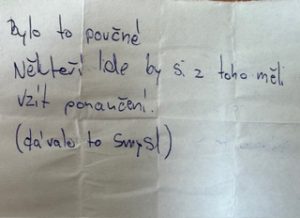 Bylo to poučné
Někteří lidé by si z toho měli
vzít ponaučení.
(dávalo to smysl)